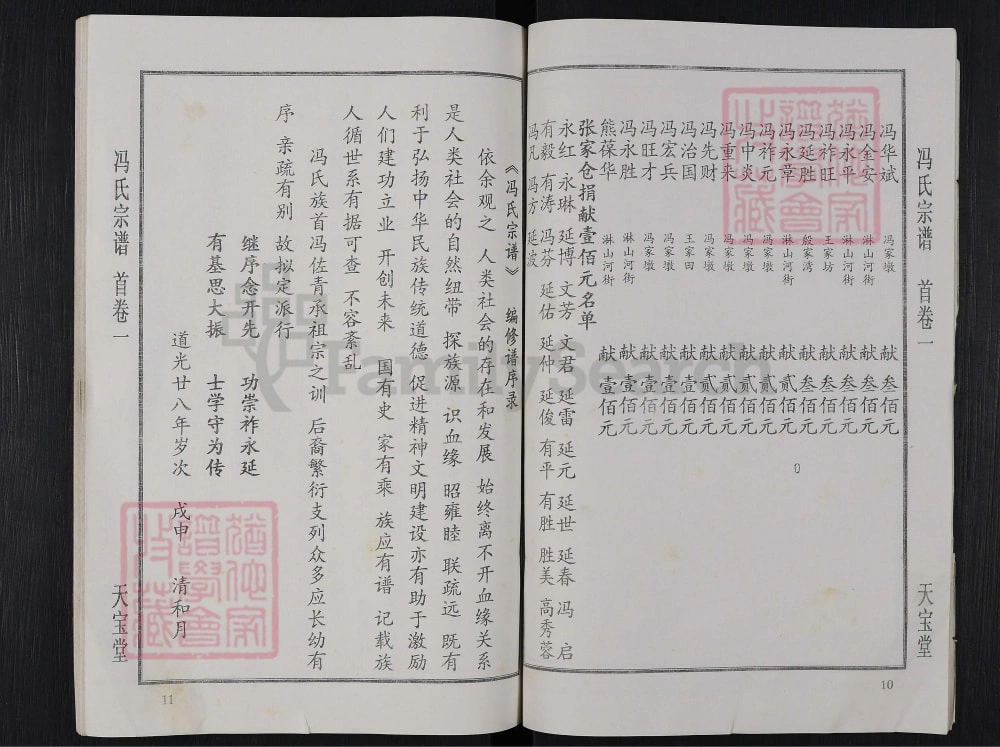 冯氏宗谱 首卷一 天宝堂
冯华斌 冯家墩 献叁佰元
冯金安 淋山河街 献叁佰元
冯永平 淋山河街 献叁佰元
冯祚旺 王家坊 献叁佰元
冯延胜 殷家湾 献叁佰元
冯永章 淋山河街 献贰佰元
冯祚元 冯家墩 献贰佰元
冯中炎 冯家墩 献贰佰元
冯重来 冯家墩 献贰佰元
冯先财 冯家墩 献贰佰元
冯治国 王家田 献壹佰元
冯宏兵 冯家墩 献壹佰元
冯旺才 冯家墩 献壹佰元
冯永胜 淋山河街 献壹佰元
熊葆华 淋山河街 献壹佰元
张家仓捐献壹佰元名单
永红 永琳 延博 文芳 文君 延雷 延元 延世 延春 冯启
有毅 有涛 冯芬 延佑 延仲 延俊 有平 有胜 胜美 高秀蓉
冯凡 冯方 延波
10
《冯氏宗谱》 编修谱序录
依余观之 人类社会的存在和发展 始终离不开血缘关系
是人类社会的自然纽带 探族源 识血缘 昭雍睦 联疏远 既有
利于弘扬中华民族传统道德 促进精神文明建设亦有助于激励
人们建功立业 开创未来 国有史 家有乘 族应有谱 记载族
人循世系有据可查 不容紊乱
冯氏族首冯佐青承祖宗之训 后裔繁衍支列众多应长幼有
序 亲疏有别 故拟定派行
继序念开先 功崇祚永延
有基思大振 士学守为传
道光廿八年岁次 戌申 清和月
冯氏宗谱 首卷一 天宝堂
11
FamilySearch
犹他家谱学会收藏
犹他家谱学会收藏